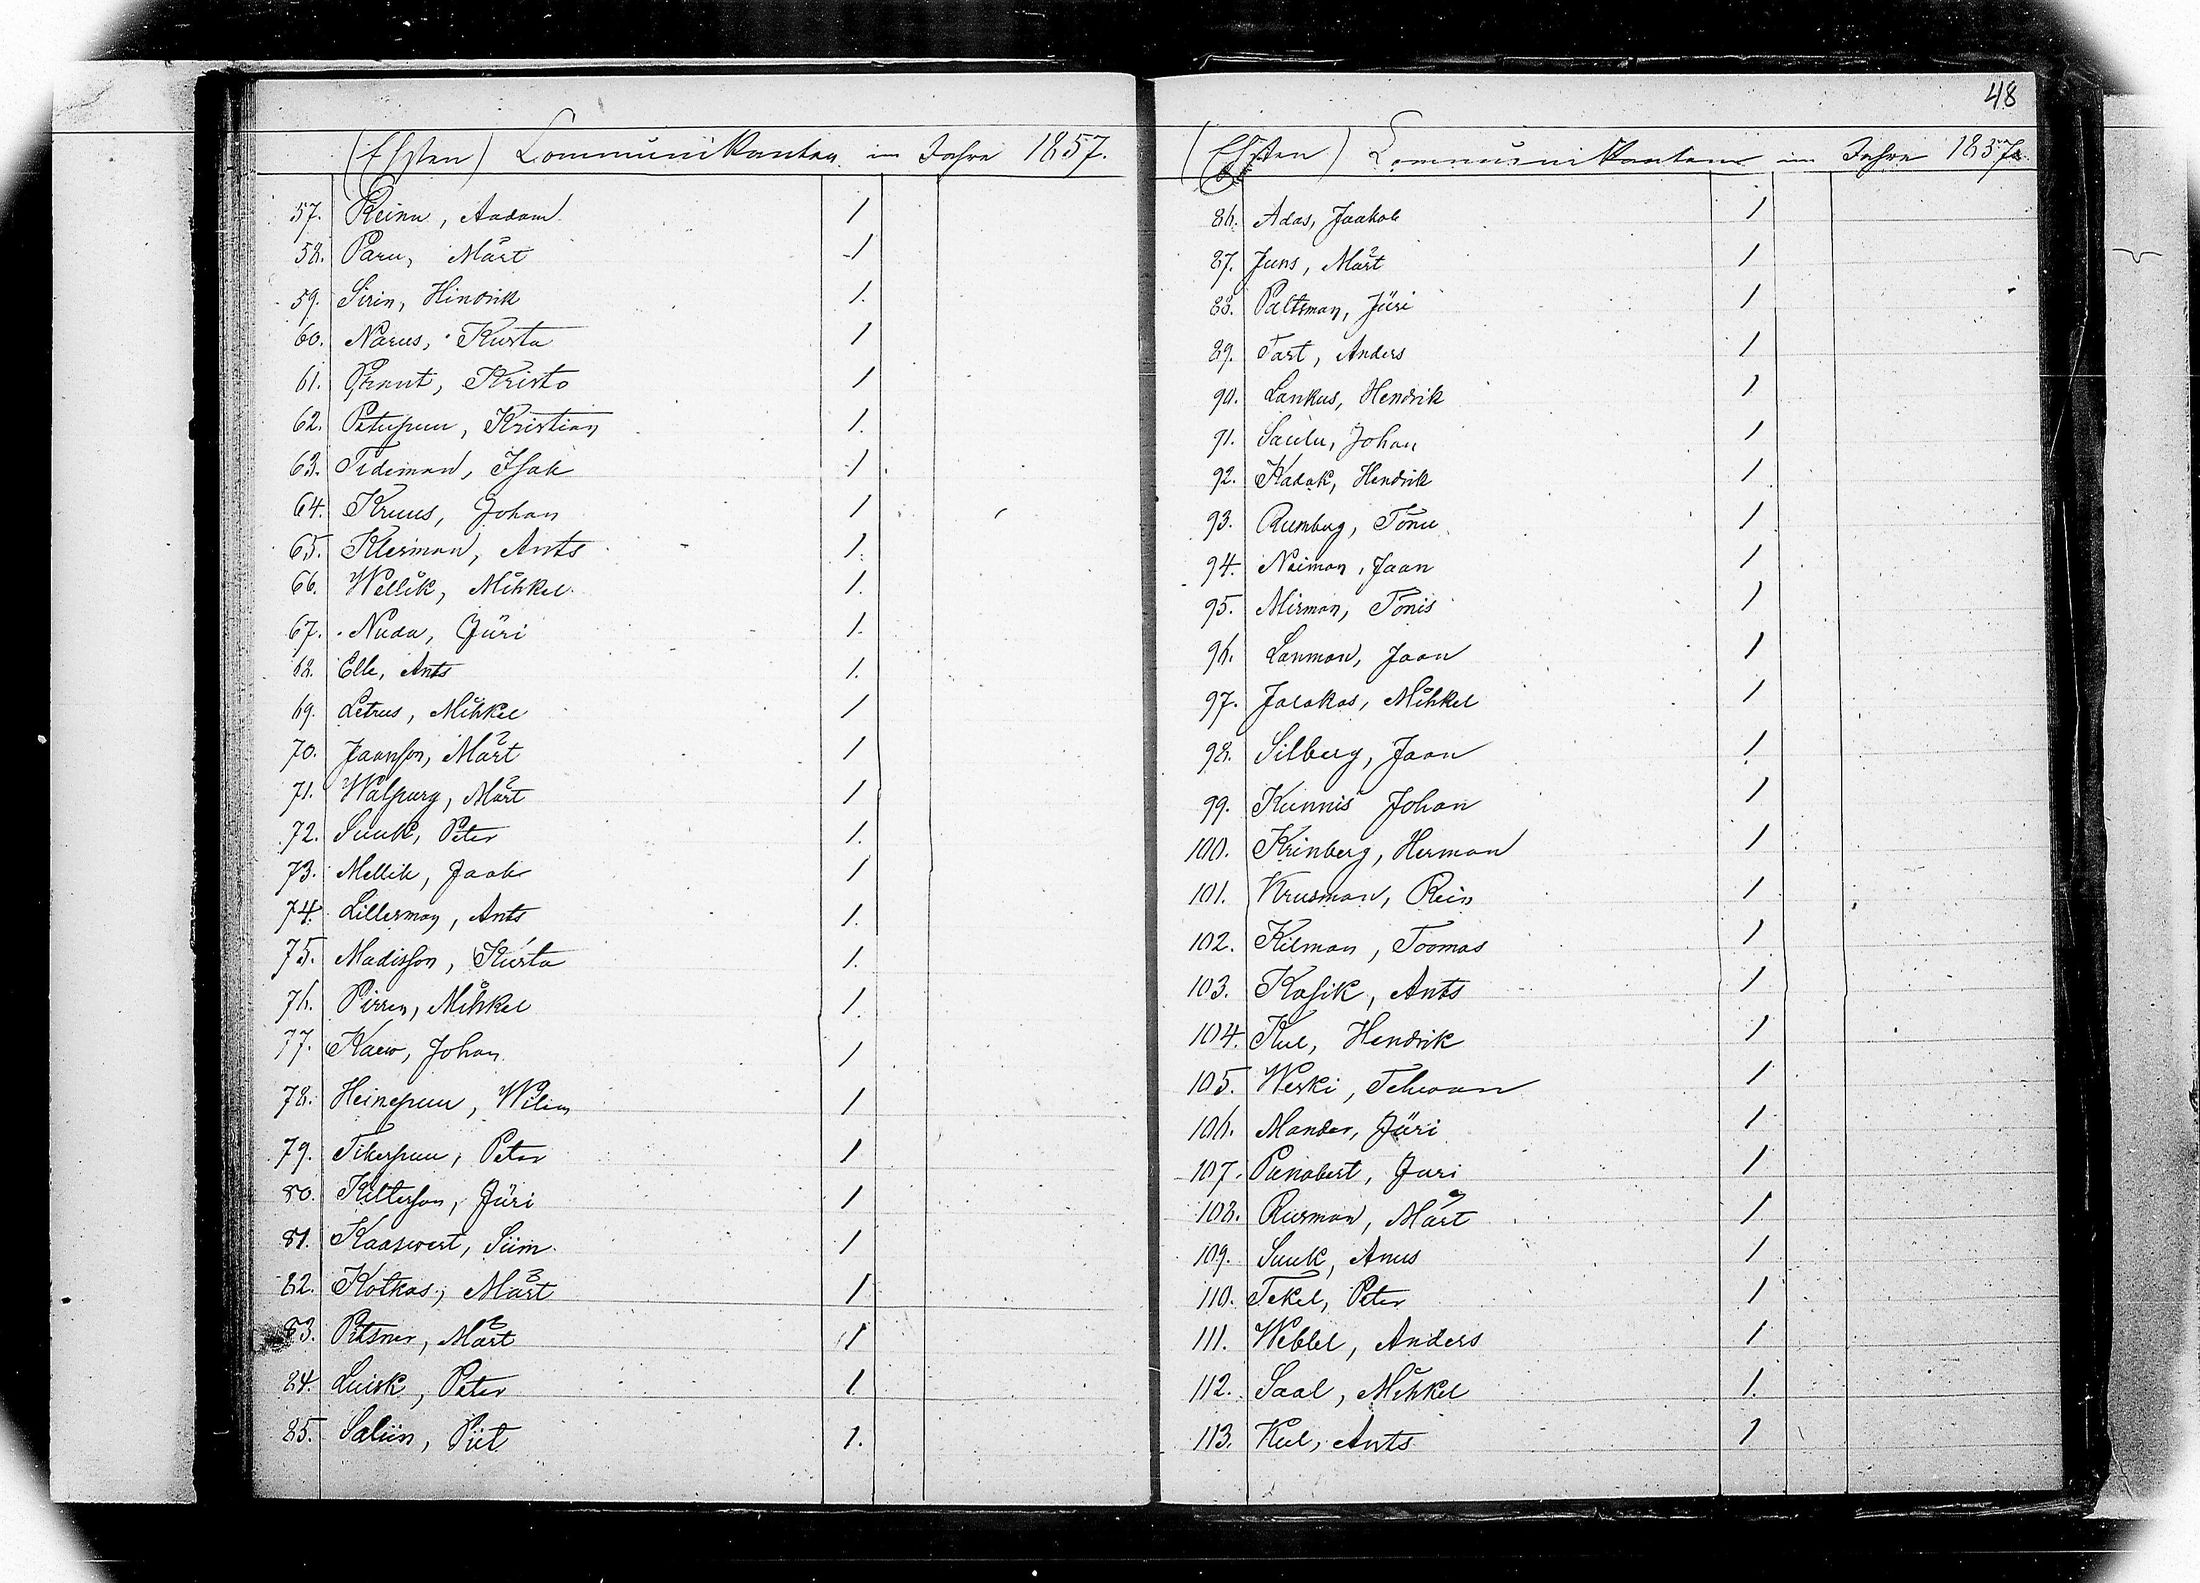 (Ehsten) Communikanten im Jahre 1857.
57. Reinu, Aadam 1
58. Paru, Märt 1
59. Sirin, Hindrik 1.
60. Narus, Kusta 1
61. Kristo 1
62. Petupuu, Kristian 1.
63. Tideman, Isak 1
64. Kruus, Johan 1
65. Klesman, Ants 1.
66. Wellik, Mihkel 1.
67. Nuda, Jüri 1.
68. Elle, Ants 1.
69. Letrus, Mihkel 1
70. Jaanson, Märt 1
71. Walpurg, Märt 1
72. Suuk, Peter 1.
73. Mellik, Jaak 1
74. Lillerman, Ants 1.
75. Madisson, Kusta 1.
76. Pirren, Mihkel 1.
77. Kaew, Johan 1
78. Heinepuu, Wilim 1
79. Tikerpuu, Peter 1
80. Kitterson, Jüri 1
81. Kaaswert, Siim 1
82. Kotkas, Märt 1
83. Pitsner, Märt 1
84. Luisk, Peter 1.
85. Saliin, Piit 1.
48
(Ehsten) Communikanten im Jahre 1857.
86. Adas, Jaakob 1
87. Juns, Märt 1
88. Paltsman, Jüri 1
89. Tart, Anders 1
90. Lankus, Hendrik 1
91. Saulu, Johan 1
92. Kadak, Hendrik 1
93. Rumberg, Tõnu 1
94. Neiman, Jaan 1
95. Mirman, Tõnis 1
96. Lanman, Jaan 1
97. Jalakas, Mihkel 1
98. Silberg, Jaan 1
99. Kunnis Johan 1
100. Krinberg, Herman 1
101. Krusman, Rein 1
102. Kilman, Toomas 1
103. Kasik, Ants 1
104. Kul, Hendrik 1
105. Weski, Tehwan 1
106. Mander, Jüri 1
107. Panabert, Juri 1
108. Rusman, Märt 1.
109. Suuk, Anus 1
110. Tekel, Peter 1
111. Webbel, Anders 1
112. Saal, Mihkel 1.
113. Kul, Ants 1